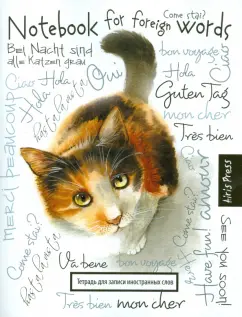 Notebook for foreign words
Come stai?
Bei Nacht sind
alle Katzen grau
bon voyage
Ciao
Hola
Oui
Hola
Guten Tag
mon cher
Très bien
MERCI BEAUCOUP
Hola
Ciao
Airis Press
Come stai?
Have fun!
amour
See you soon!
Тетрадь для записи иностранных слов
Va bene
bon voyage
Très bien
mon cher